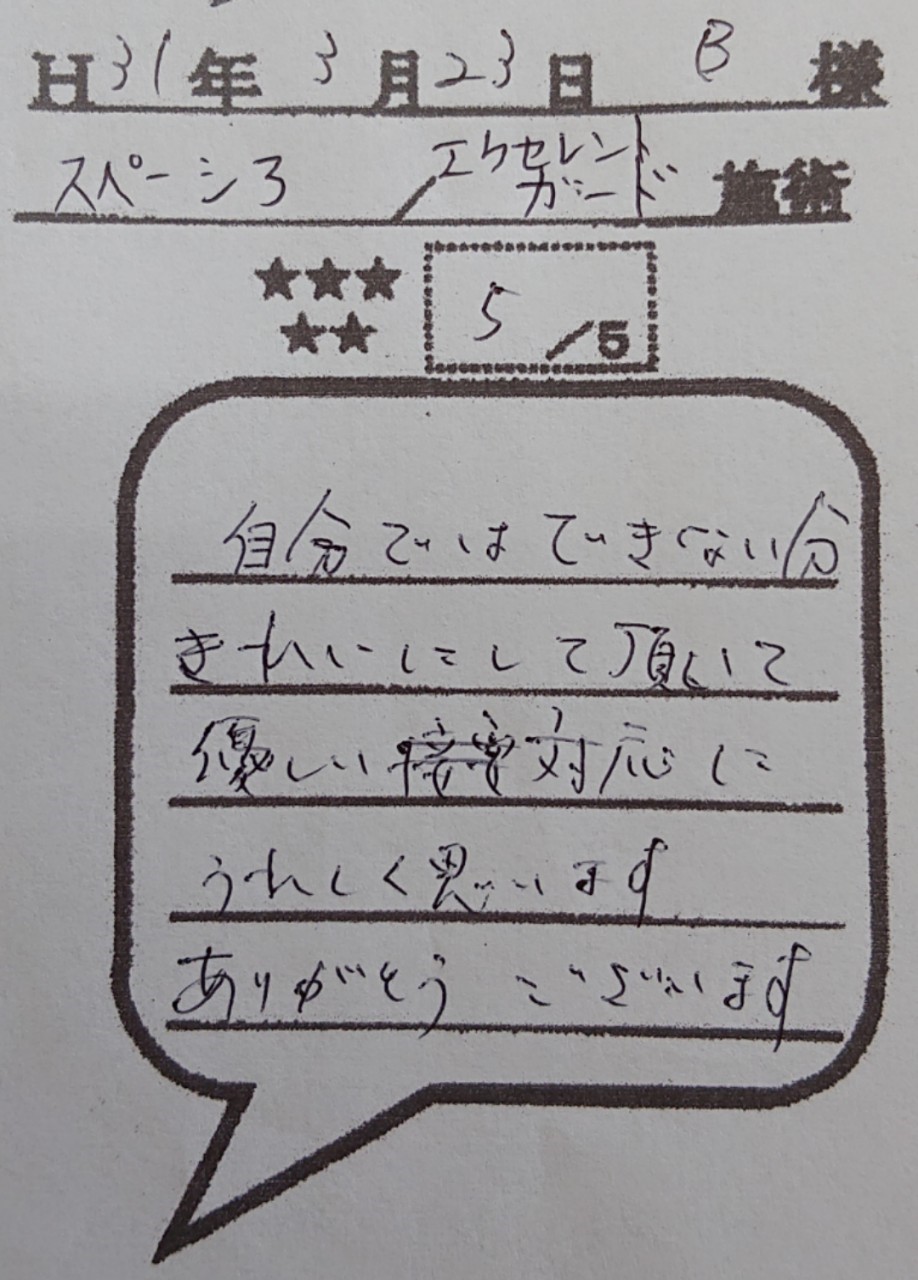 H31年3月23日 B 様
スペーシア / エクセレント
ガード 施術
★★★
★★ 5/5
自分ではできない分
きれいにして頂いて
優しい対応に
うれしく思います
ありがとうございます